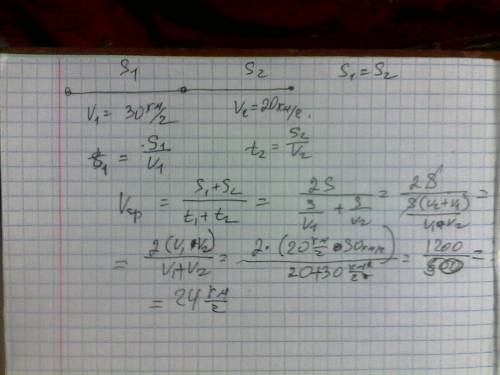 S₁ S₂ S₁ = S₂
V₁ = 30 км/г V₂ = 20 км/г.
t₁ = S₁/V₁ t₂ = S₂/V₂
Vср = (S₁+S₂)/(t₁+t₂) = 2S/(S/V₁ + S/V₂) = 2S/(S(V₂+V₁)/(V₁•V₂)) =
= 2(V₁•V₂)/(V₁+V₂) = 2•(20 км/г • 30 км/г)/(20+30 км/г) = 1200/50 =
= 24 км/г